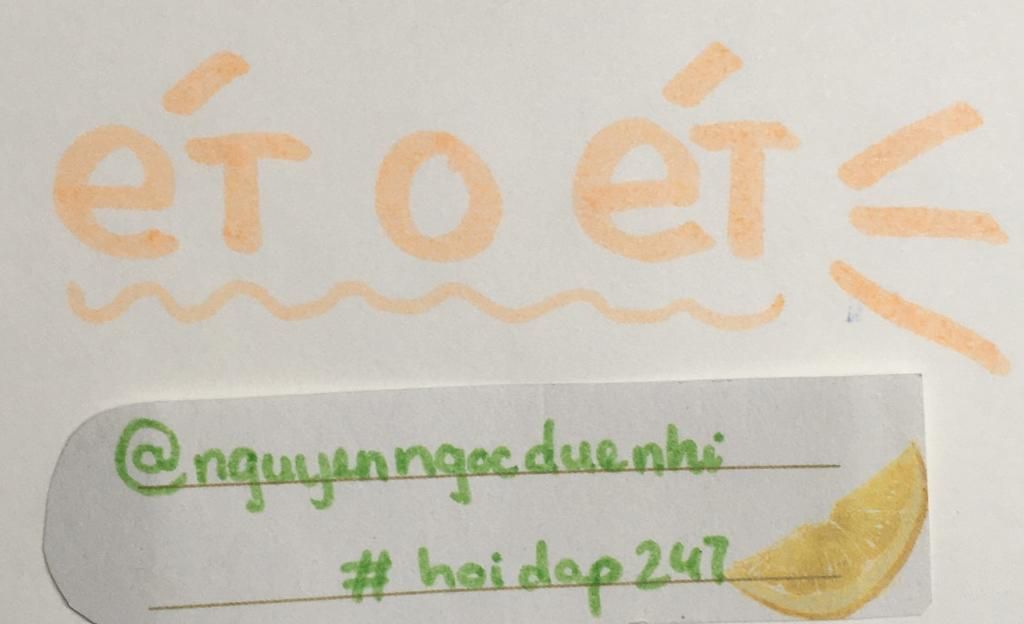 éT o éT
@nguyenngocduenhi
# hoidap247